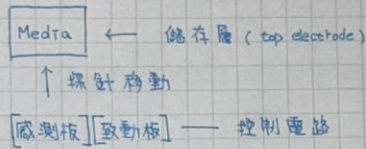 Media ← 儲存層 (top electrode)
↑ 探針移動
[感測板][致動板] — 控制電路